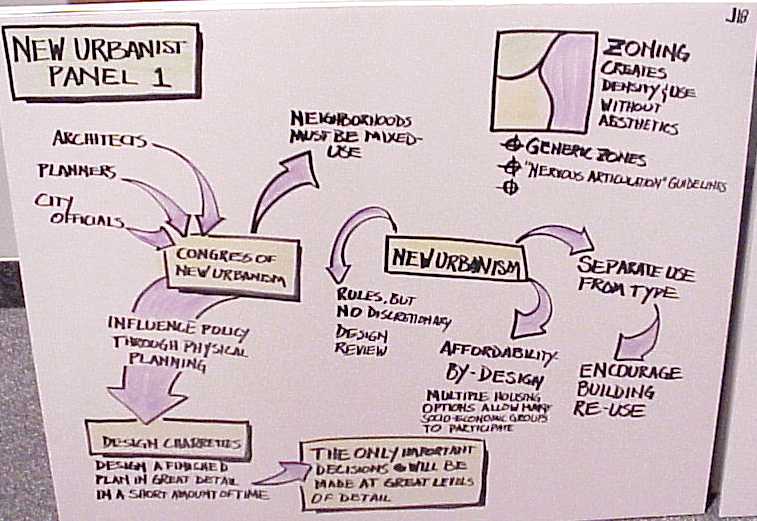 J18
NEW URBANIST
PANEL 1
ARCHITECTS
PLANNERS
CITY
OFFICIALS
NEIGHBORHOODS
MUST BE MIXED-
USE
CONGRES OF
NEW URBANISM
INFLUENCE POLICY
THROUGH PHYSICAL
PLANNING
DESIGN CHARRETTES
DESIGN A FINISHED
PLAN IN GREAT DETAIL
IN A SHORT AMOUNT OF TIME
THE ONLY IMPORTANT
DECISIONS WILL BE
MADE AT GREAT LEVELS
OF DETAIL
ZONING
CREATES
DENSITY & USE
WITHOUT
AESTHETICS
GENERIC ZONES
"NERVOUS ARTICULATION" GUIDELINES
NEW URBANISM
RULES, BUT
NO DISCRETIONARY
DESIGN
REVIEW
AFFORDABILITY-
BY-DESIGN
MULTIPLE HOUSING
OPTIONS ALLOW MANY
SOCIO-ECONOMIC GROUPS
TO PARTICIPATE
SEPARATE USE
FROM TYPE
ENCOURAGE
BUILDING
RE-USE